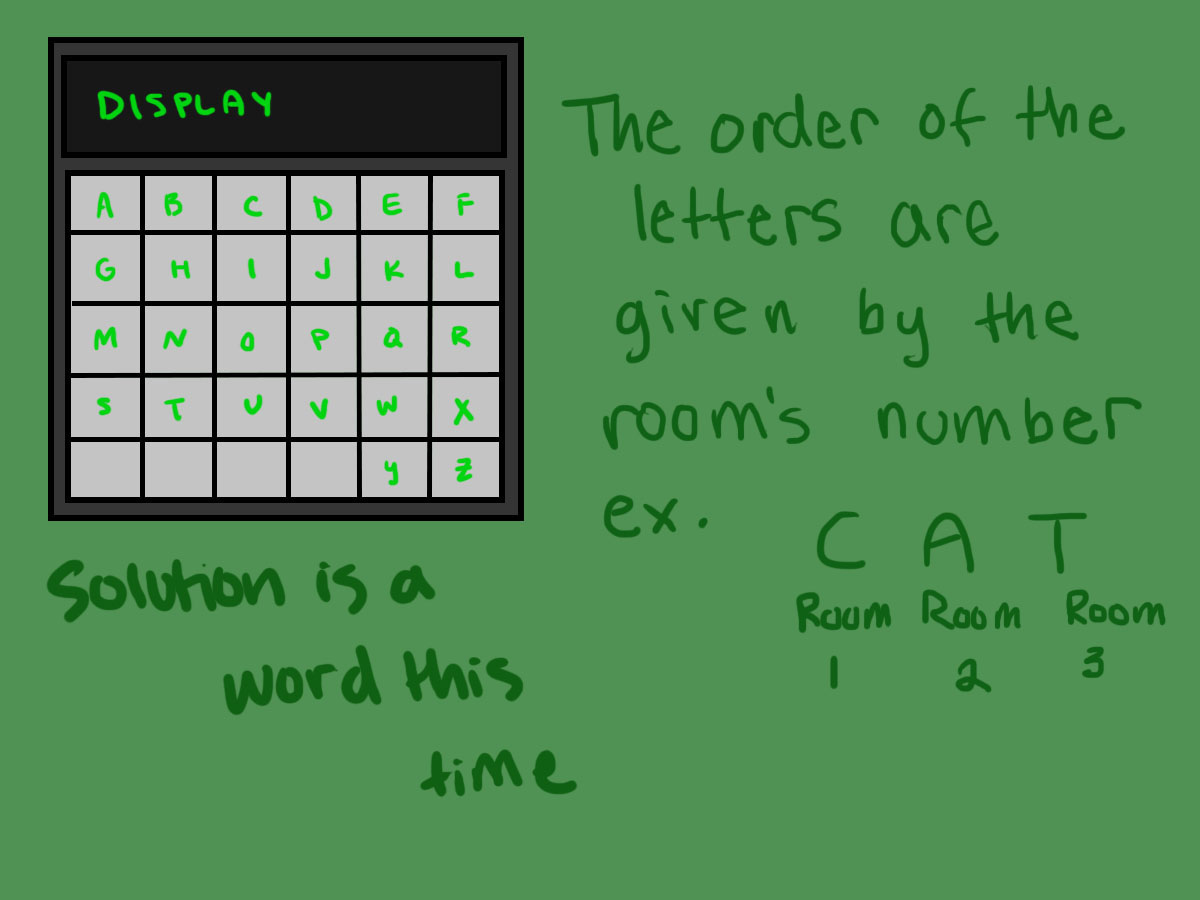 DISPLAY
A B C D E F
G H I J K L
M N O P Q R
S T U V W X
Y Z
Solution is a
word this
time
The order of the
letters are
given by the
room's number
ex.
C A T
Room Room Room
1 2 3